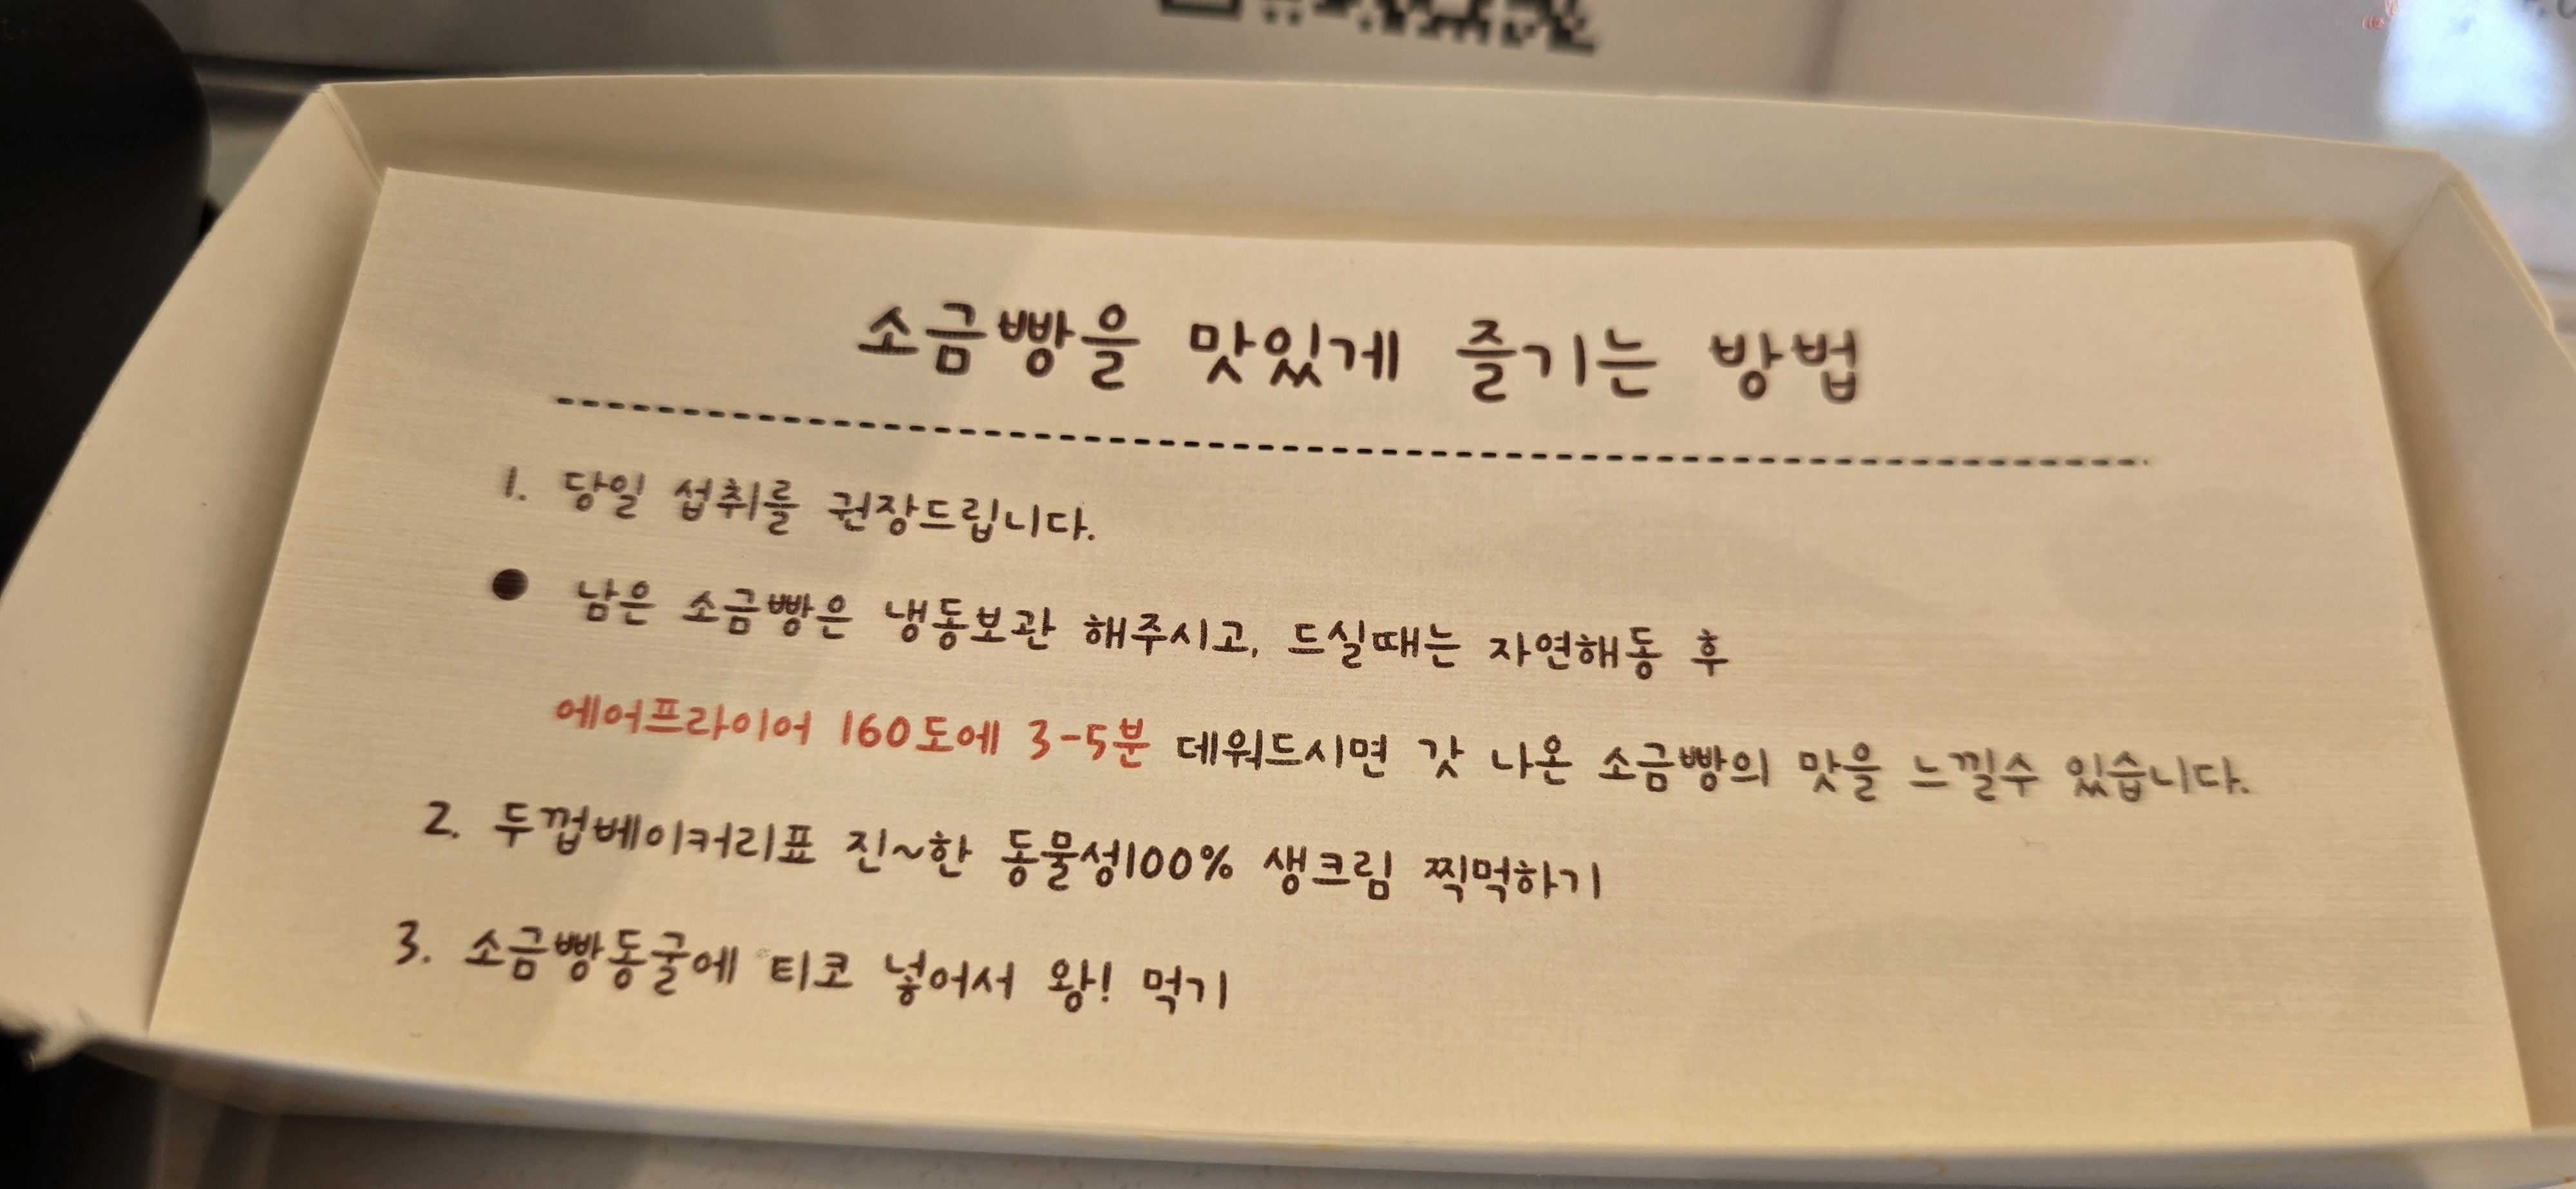 소금빵을 맛있게 즐기는 방법
1. 당일 섭취를 권장드립니다.
● 남은 소금빵은 냉동보관 해주시고, 드실때는 자연해동 후
에어프라이어 160도에 3-5분 데워드시면 갓 나온 소금빵의 맛을 느낄수 있습니다.
2. 두껍베이커리표 진~한 동물성100% 생크림 찍먹하기
3. 소금빵동굴에 티코 넣어서 왕! 먹기